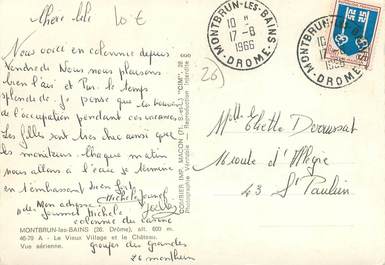 Chère Lili
10 €
Nous voici en colonie depuis
vendredi. Nous nous plaisons
bien l'air et
le temps
splendide. Je pense que tu
de l'occupation pendant ces vacances.
Les filles sont très chic ainsi que
les monitrices. Chaque matin
nous allons à l'eau je termine
en t'embrassant bien fort
Michèle
Mon adresse
Michèle
colonie du
groupe des grandes
26 Montbrun
MONTBRUN-les-BAINS (26. Drôme), alt. 600 m.
46-79 A - Le Vieux Village et le Château.
Vue aérienne.
COMBIER IMP. MACON (71. S.-et-L.) "CIM"
Photographie Véritable - Reproduction Interdite
MONTBRUN-LES-BAINS
10 H
17-8
1966
DROME
(26)
Mlle
Route d'Allègre
43 St Paulien